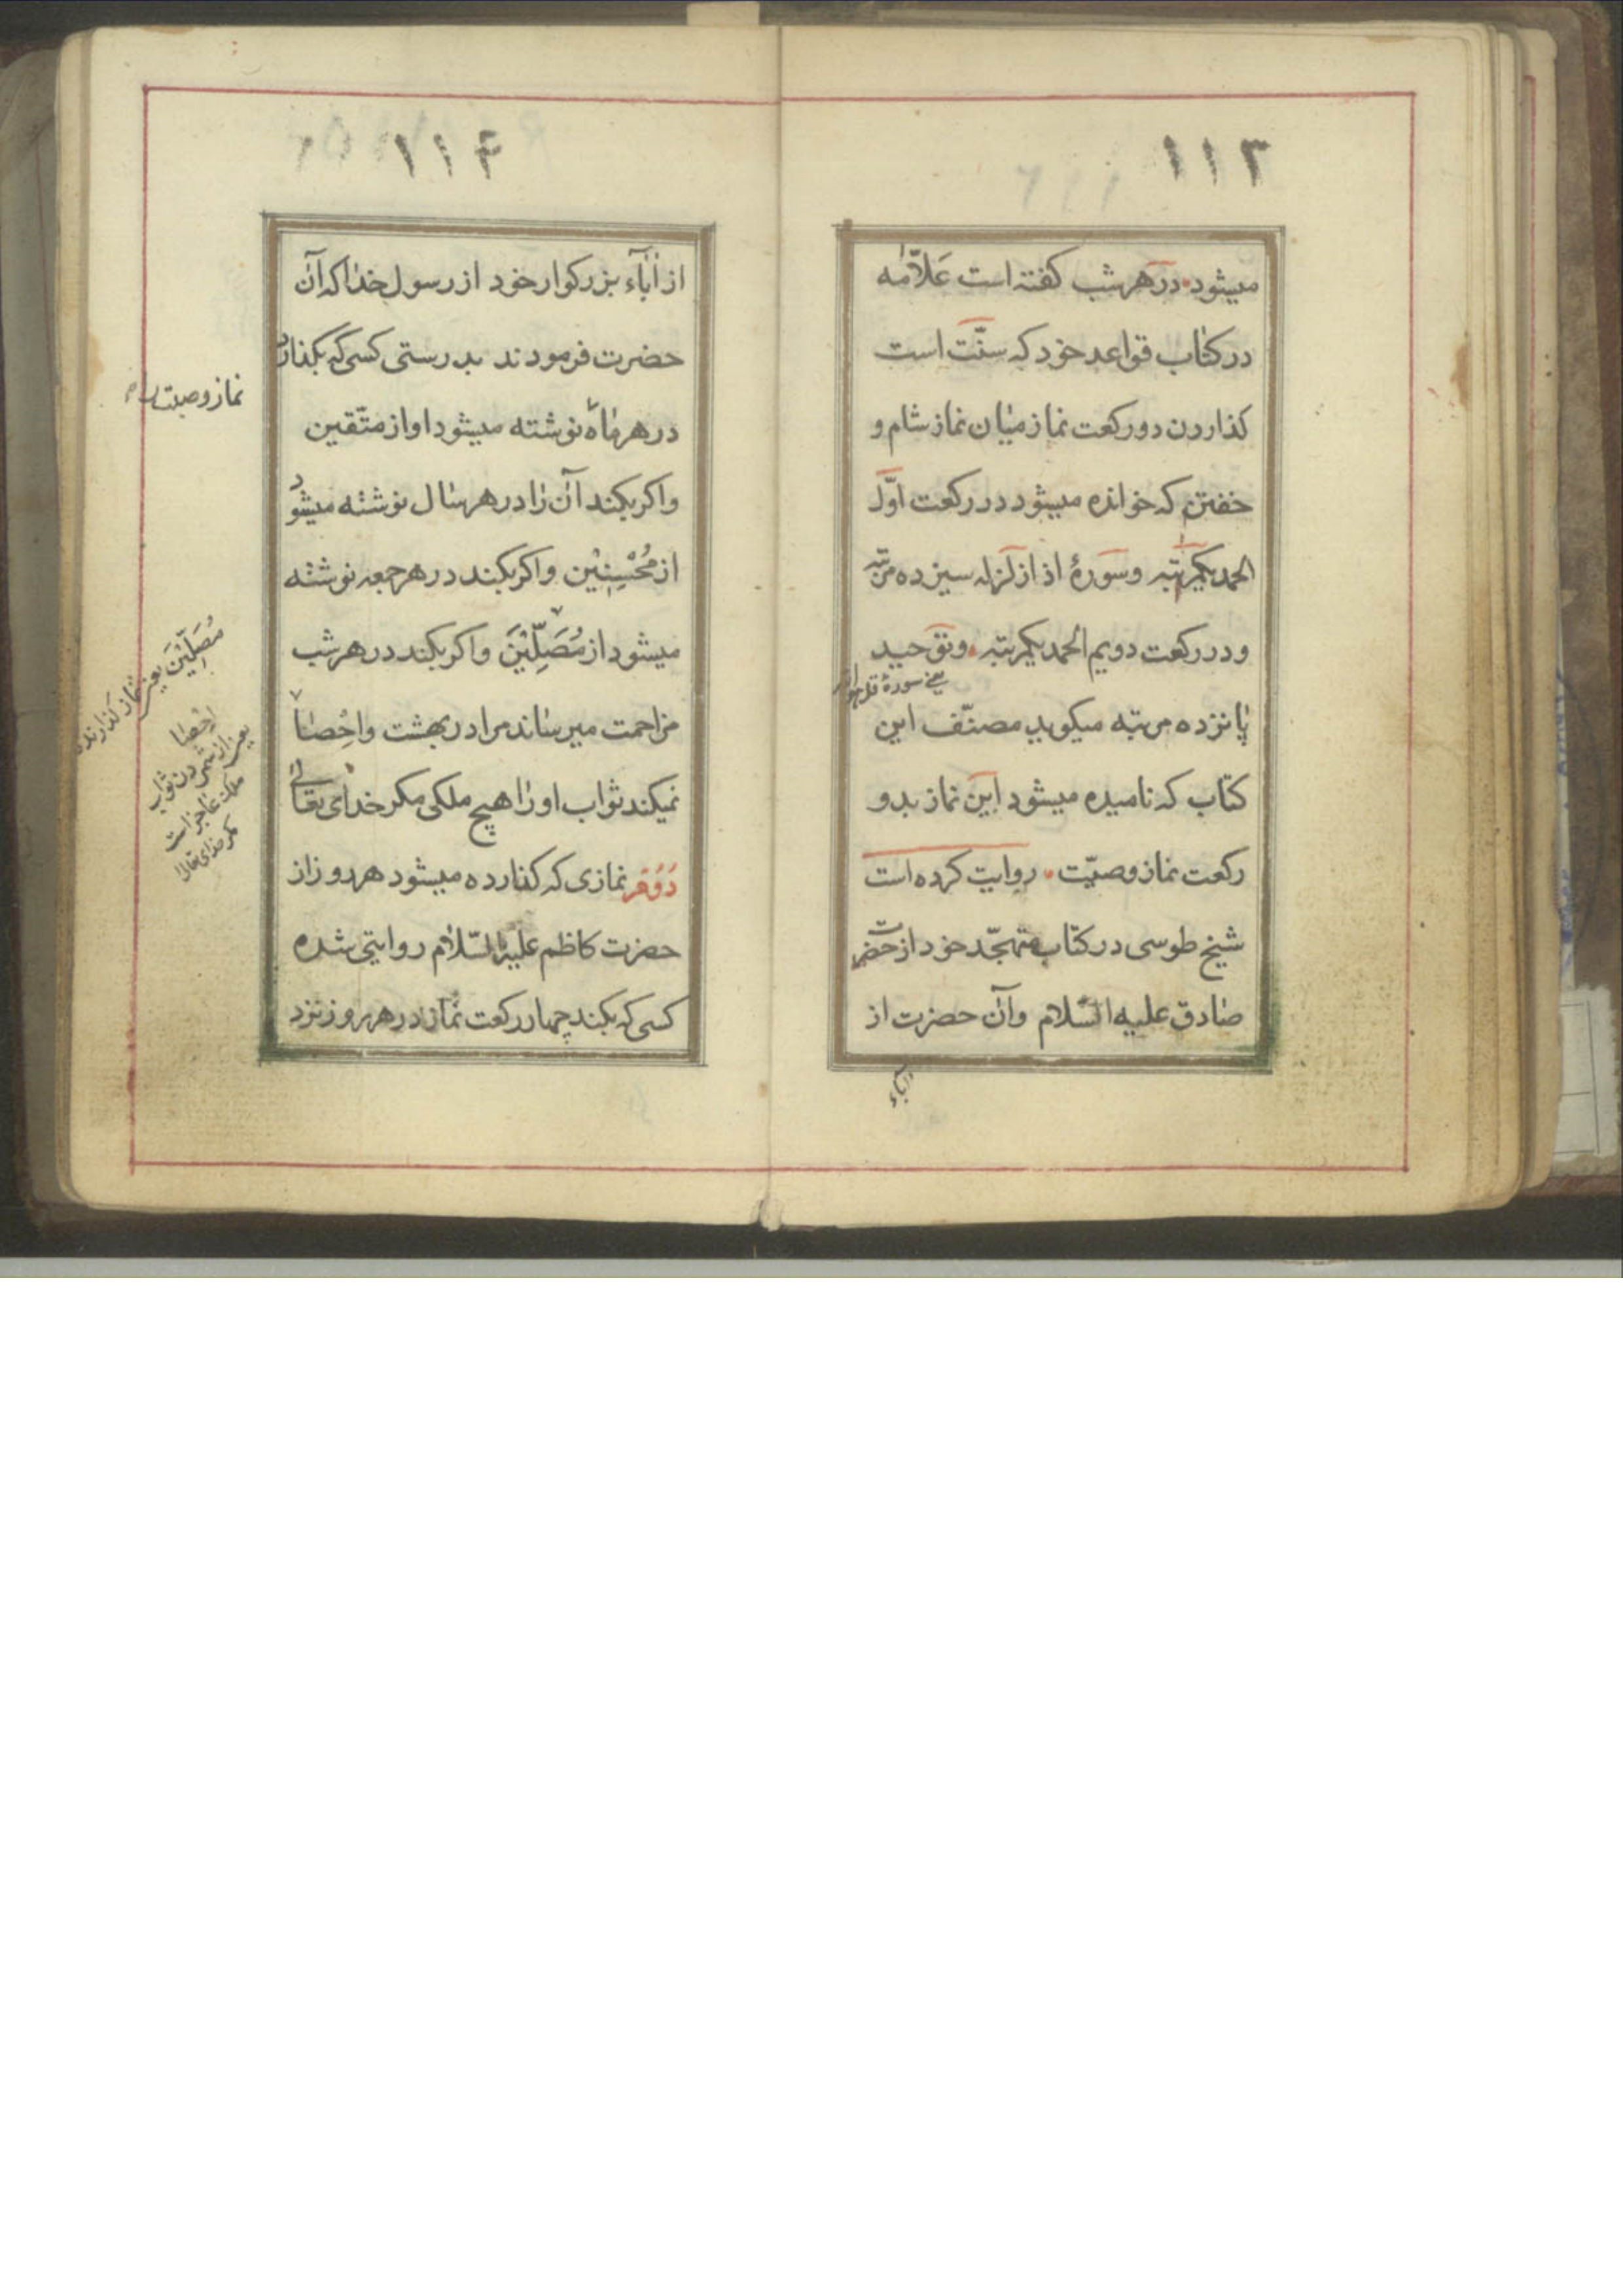 ۱۱۳
میشود در هر شب کفته است عَلاّمه
در کتاب قواعد خود که سنّت است
کذاردن دو رکعت نماز میان نماز شام و
خفتن که خوانده میشود در رکعت اوّل
الحمد یکمرتبه و سورهٔ اذا زلزله سیزده مرتبه
و در رکعت دویم الحمد یکمرتبه و توحید
یعنی سورهٔ قل هو الله
پانزده مرتبه میکوید مصنّف این
کتاب که نامیده میشود این نماز بدو
رکعت نماز وصیّت روایت کرده است
شیخ طوسی در کتاب متهجّد خود از حضرت
صادق علیه السّلام و آن حضرت از
آباء
۱۱۴
از آباء بزرکوار خود از رسول خدا که آن
حضرت فرمودند بدرستی کسی که بکذارد
در هر ماه نوشته میشود او از متّقین
و اکر بکند آن را در هر سال نوشته میشود
از مُحْسِنِیْن و اکر بکند در هر جمعه نوشته
میشود از مُصَلِّیْنَ و اکر بکند در هر شب
مزاحمت میرساند مرا در بهشت و اِحْصا
نمیکند ثواب او را هیچ ملکی مکر خدای تعالی
دُوُم نمازی که کذارده میشود هر روز از
حضرت کاظم علیه السّلام روایتی شده
کسی که بکند چهار رکعت نماز در هر روز نزد
نماز وصیت
مُصَلِّیْنَ یعنی نماز کذارنده
اِحْصا
یعنی از شمردن ثواب
ملک عاجز است
مکر خدای تعالی